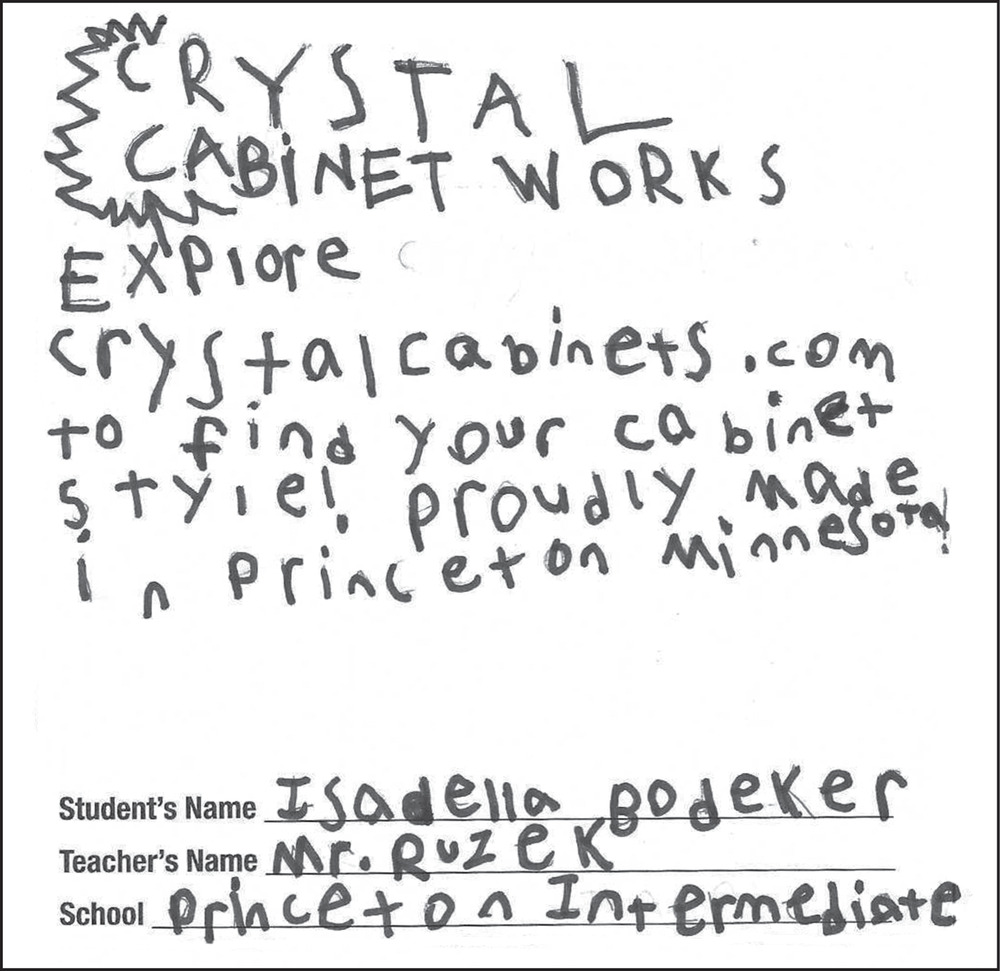 CRYSTAL
CABINET WORKS
Explore
crystalcabinets.com
to find your cabinet
style! proudly made
in princeton Minnesota!
Student's Name Isadella Bodeker
Teacher's Name Mr. Ruzek
School princeton Intermediate